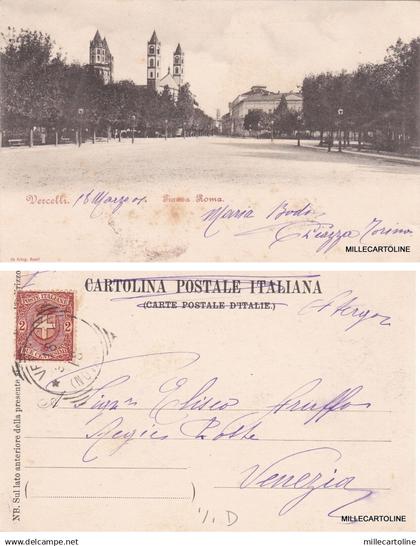 Vercelli. 18 Marzo 01. Piazza Roma.
Maria Bodo
Piazza Torino
MILLECARTOLINE
CARTOLINA POSTALE ITALIANA
(CARTE POSTALE D'ITALIE.)
NB. Sul lato anteriore della presente
POSTE ITALIANE
2 2
A Tergo
Eliseo
Regie Poste
Venezia
MILLECARTOLINE
delcampe.net
millecartoline